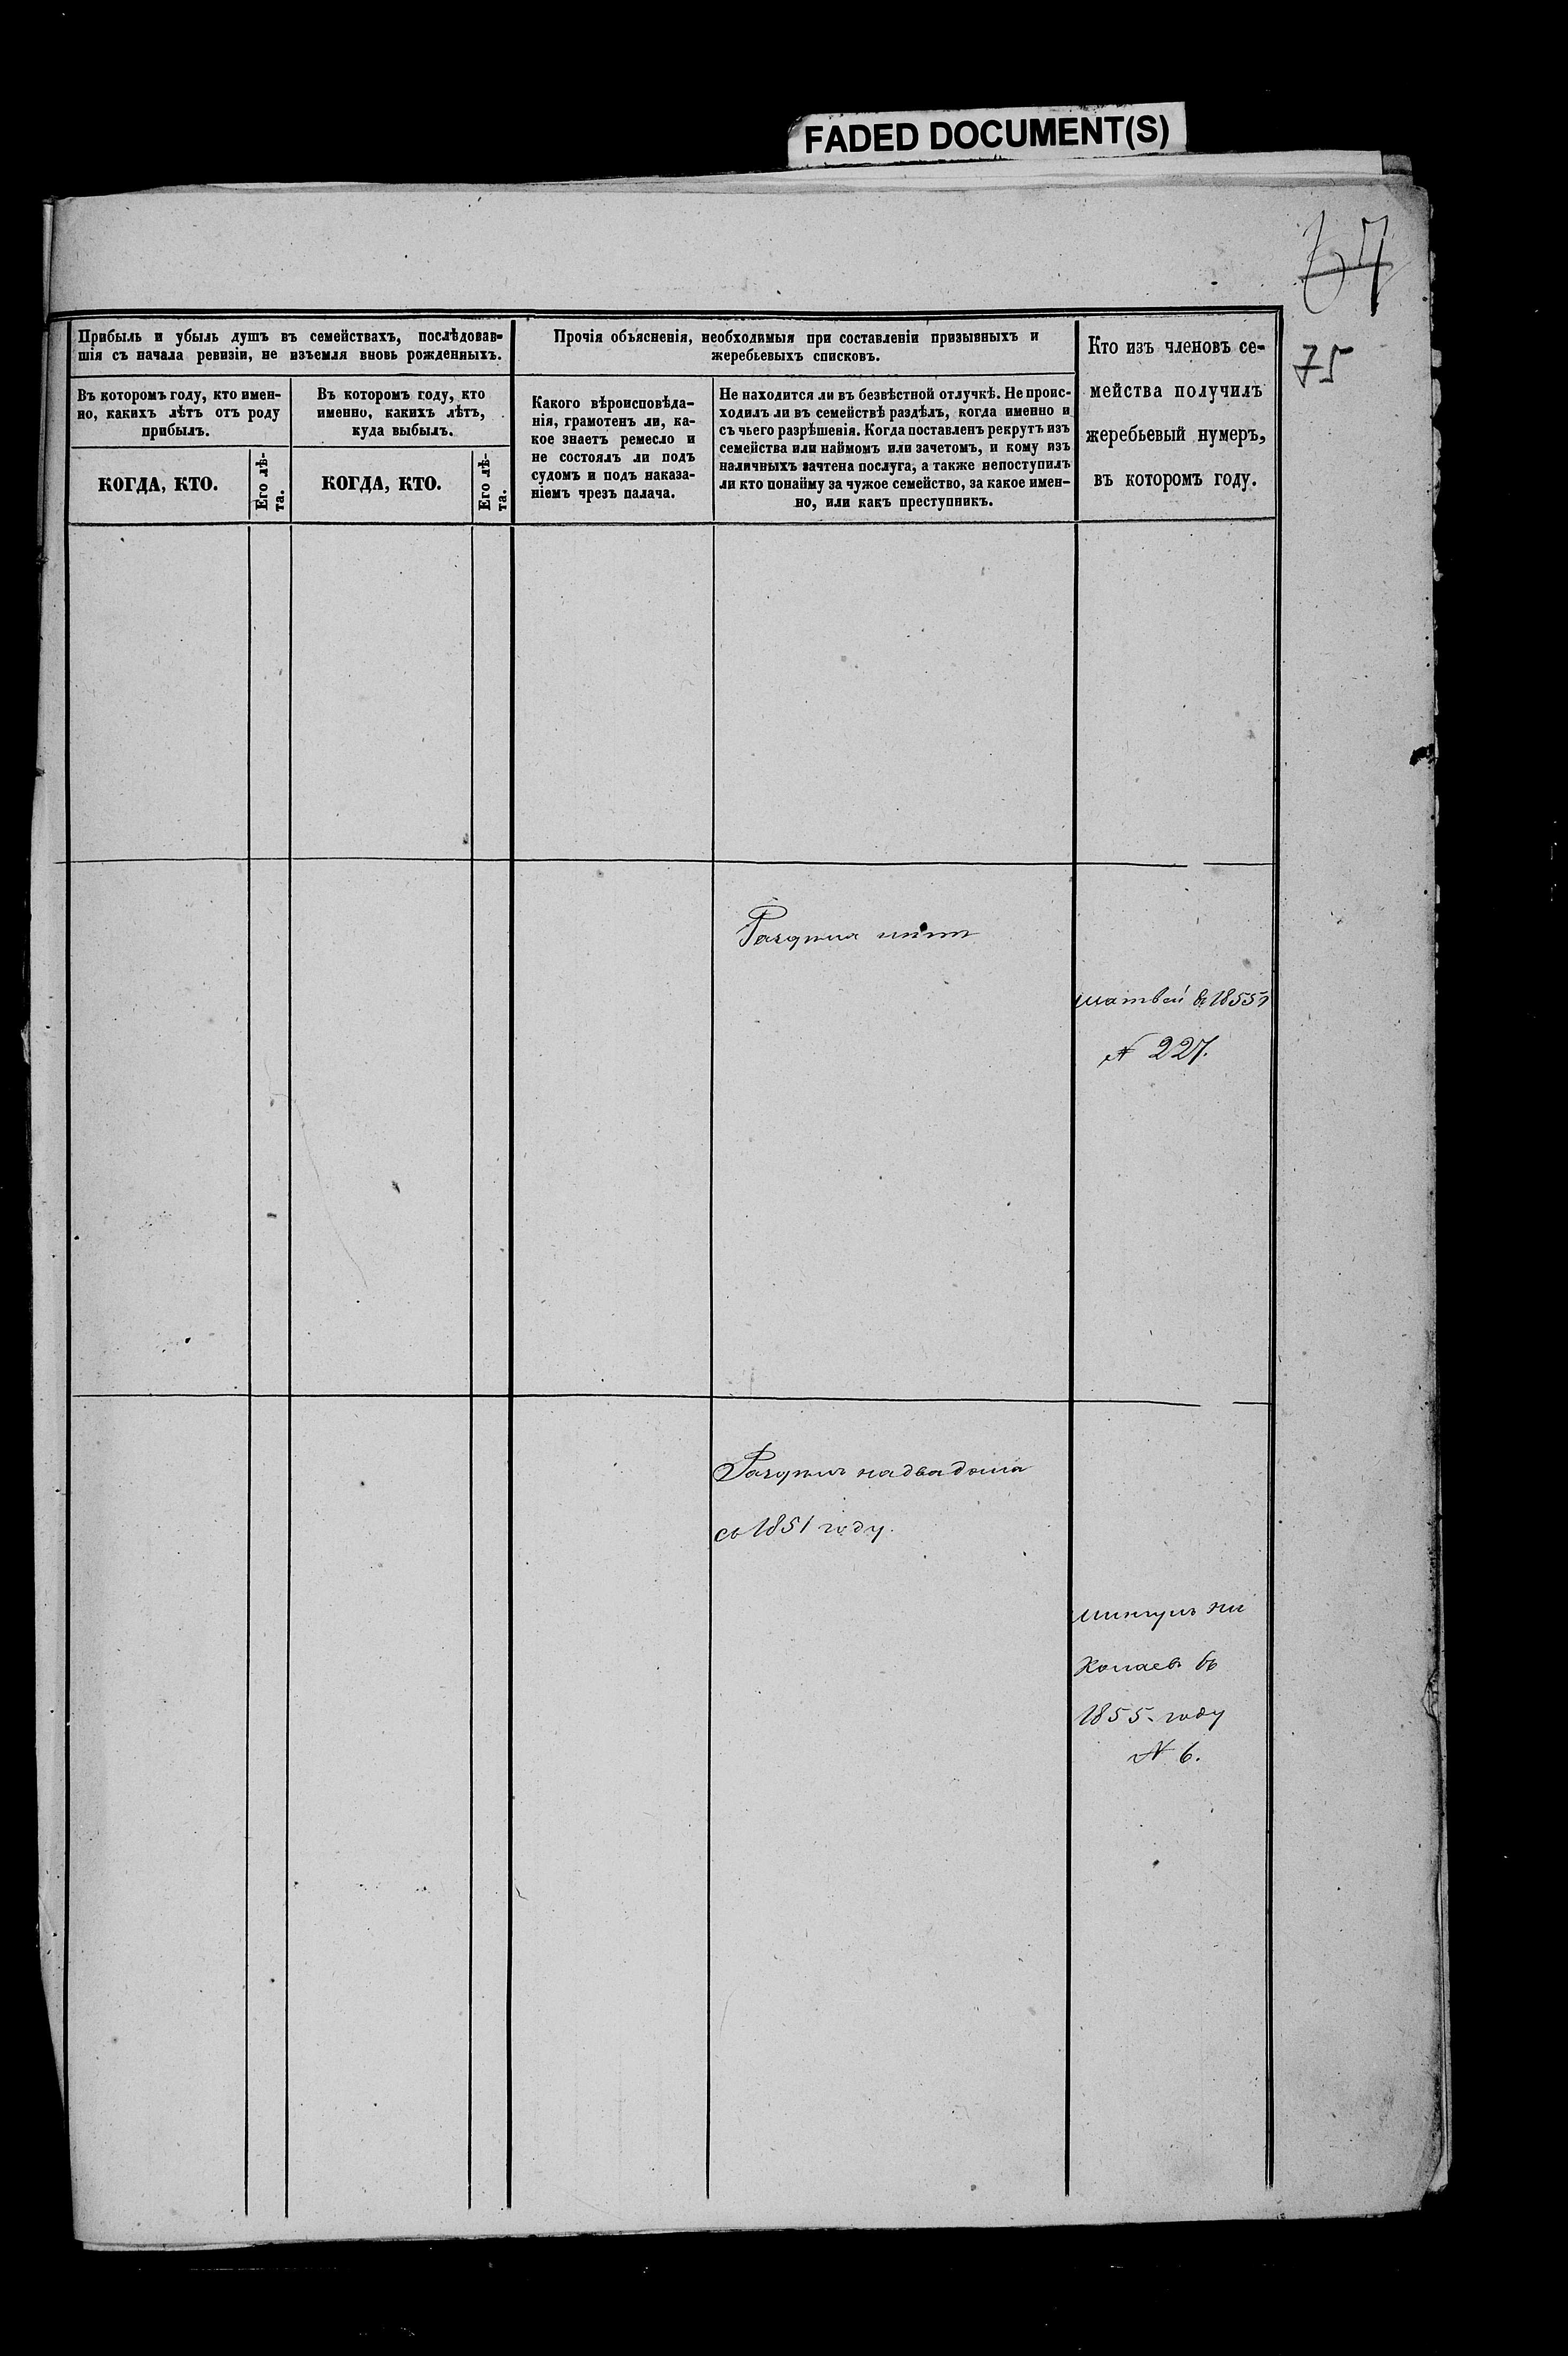 FADED DOCUMENT(S)
67
75
Прибыль и убыль душъ въ семействахъ, послѣдовав-
шія съ начала ревизіи, не изъемля вновь рожденныхъ.
Въ которомъ году, кто имен-
но, какихъ лѣтъ отъ роду
прибылъ.
КОГДА, КТО.
Его лѣ-
та.
Въ которомъ году, кто
именно, какихъ лѣтъ,
куда выбылъ.
КОГДА, КТО.
Его лѣ-
та.
Прочія объясненія, необходимыя при составленіи призывныхъ и
жеребьевыхъ списковъ.
Какого вѣроисповѣда-
нія, грамотенъ ли, ка-
кое знаетъ ремесло и
не состоялъ ли подъ
судомъ и подъ наказа-
ніемъ чрезъ палача.
Не находится ли въ безвѣстной отлучкѣ. Не проис-
ходилъ ли въ семействѣ раздѣлъ, когда именно и
съ чьего разрѣшенія. Когда поставленъ рекрутъ изъ
семейства или наймомъ или зачетомъ, и кому изъ
наличныхъ зачтена послуга, а также непоступилъ
ли кто понайму за чужое семейство, за какое имен-
но, или какъ преступникъ.
Кто изъ членовъ се-
мейства получилъ
жеребьевый нумеръ,
въ которомъ году.
Раздѣла нѣтъ
матвей въ 1855 г
№ 227.
Раздѣлъ надвадома
съ 1851 году.
ни
колаевъ въ
1855. году
№ 6.